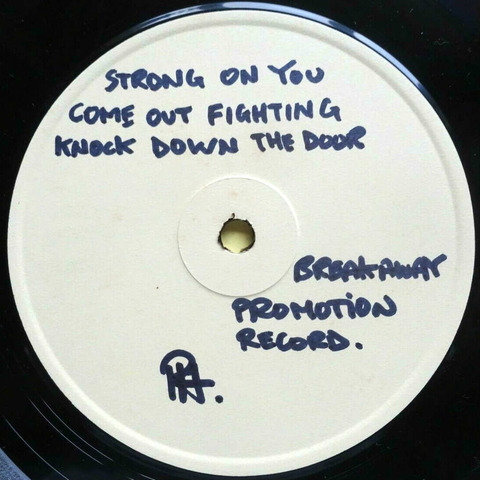 STRONG ON YOU
COME OUT FIGHTING
KNOCK DOWN THE DOOR
BREAKAWAY
PROMOTION
RECORD.